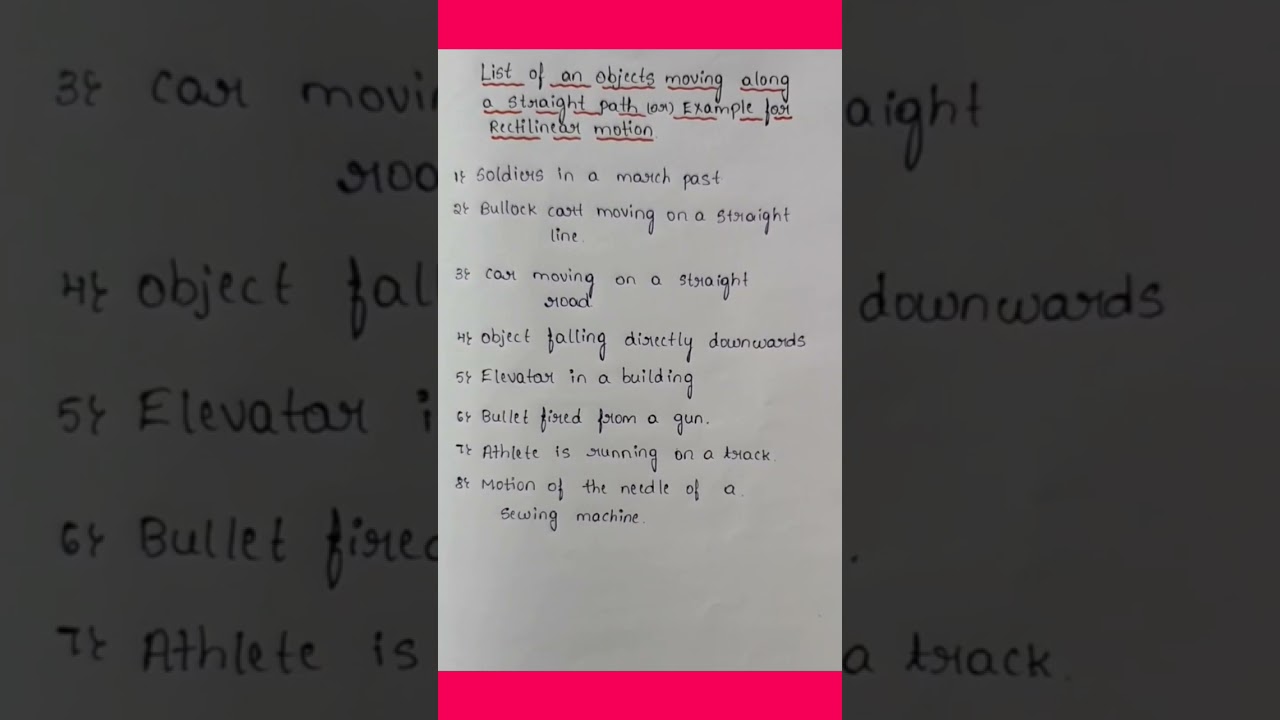 List of an objects moving along
a straight path (or) Example for
Rectilinear motion
1} Soldiers in a march past
2} Bullock cart moving on a straight
line.
3} car moving on a straight
road
4} object falling directly downwards
5} Elevator in a building
6} Bullet fired from a gun.
7} Athlete is running on a track.
8} Motion of the needle of a.
Sewing machine.